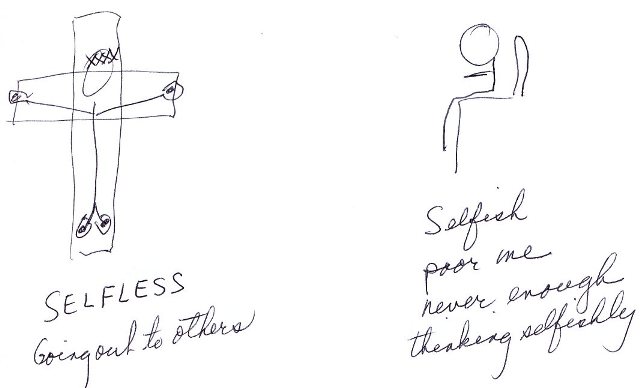 SELFLESS
Going out to others
Selfish
poor me
never enough
thinking selfishly